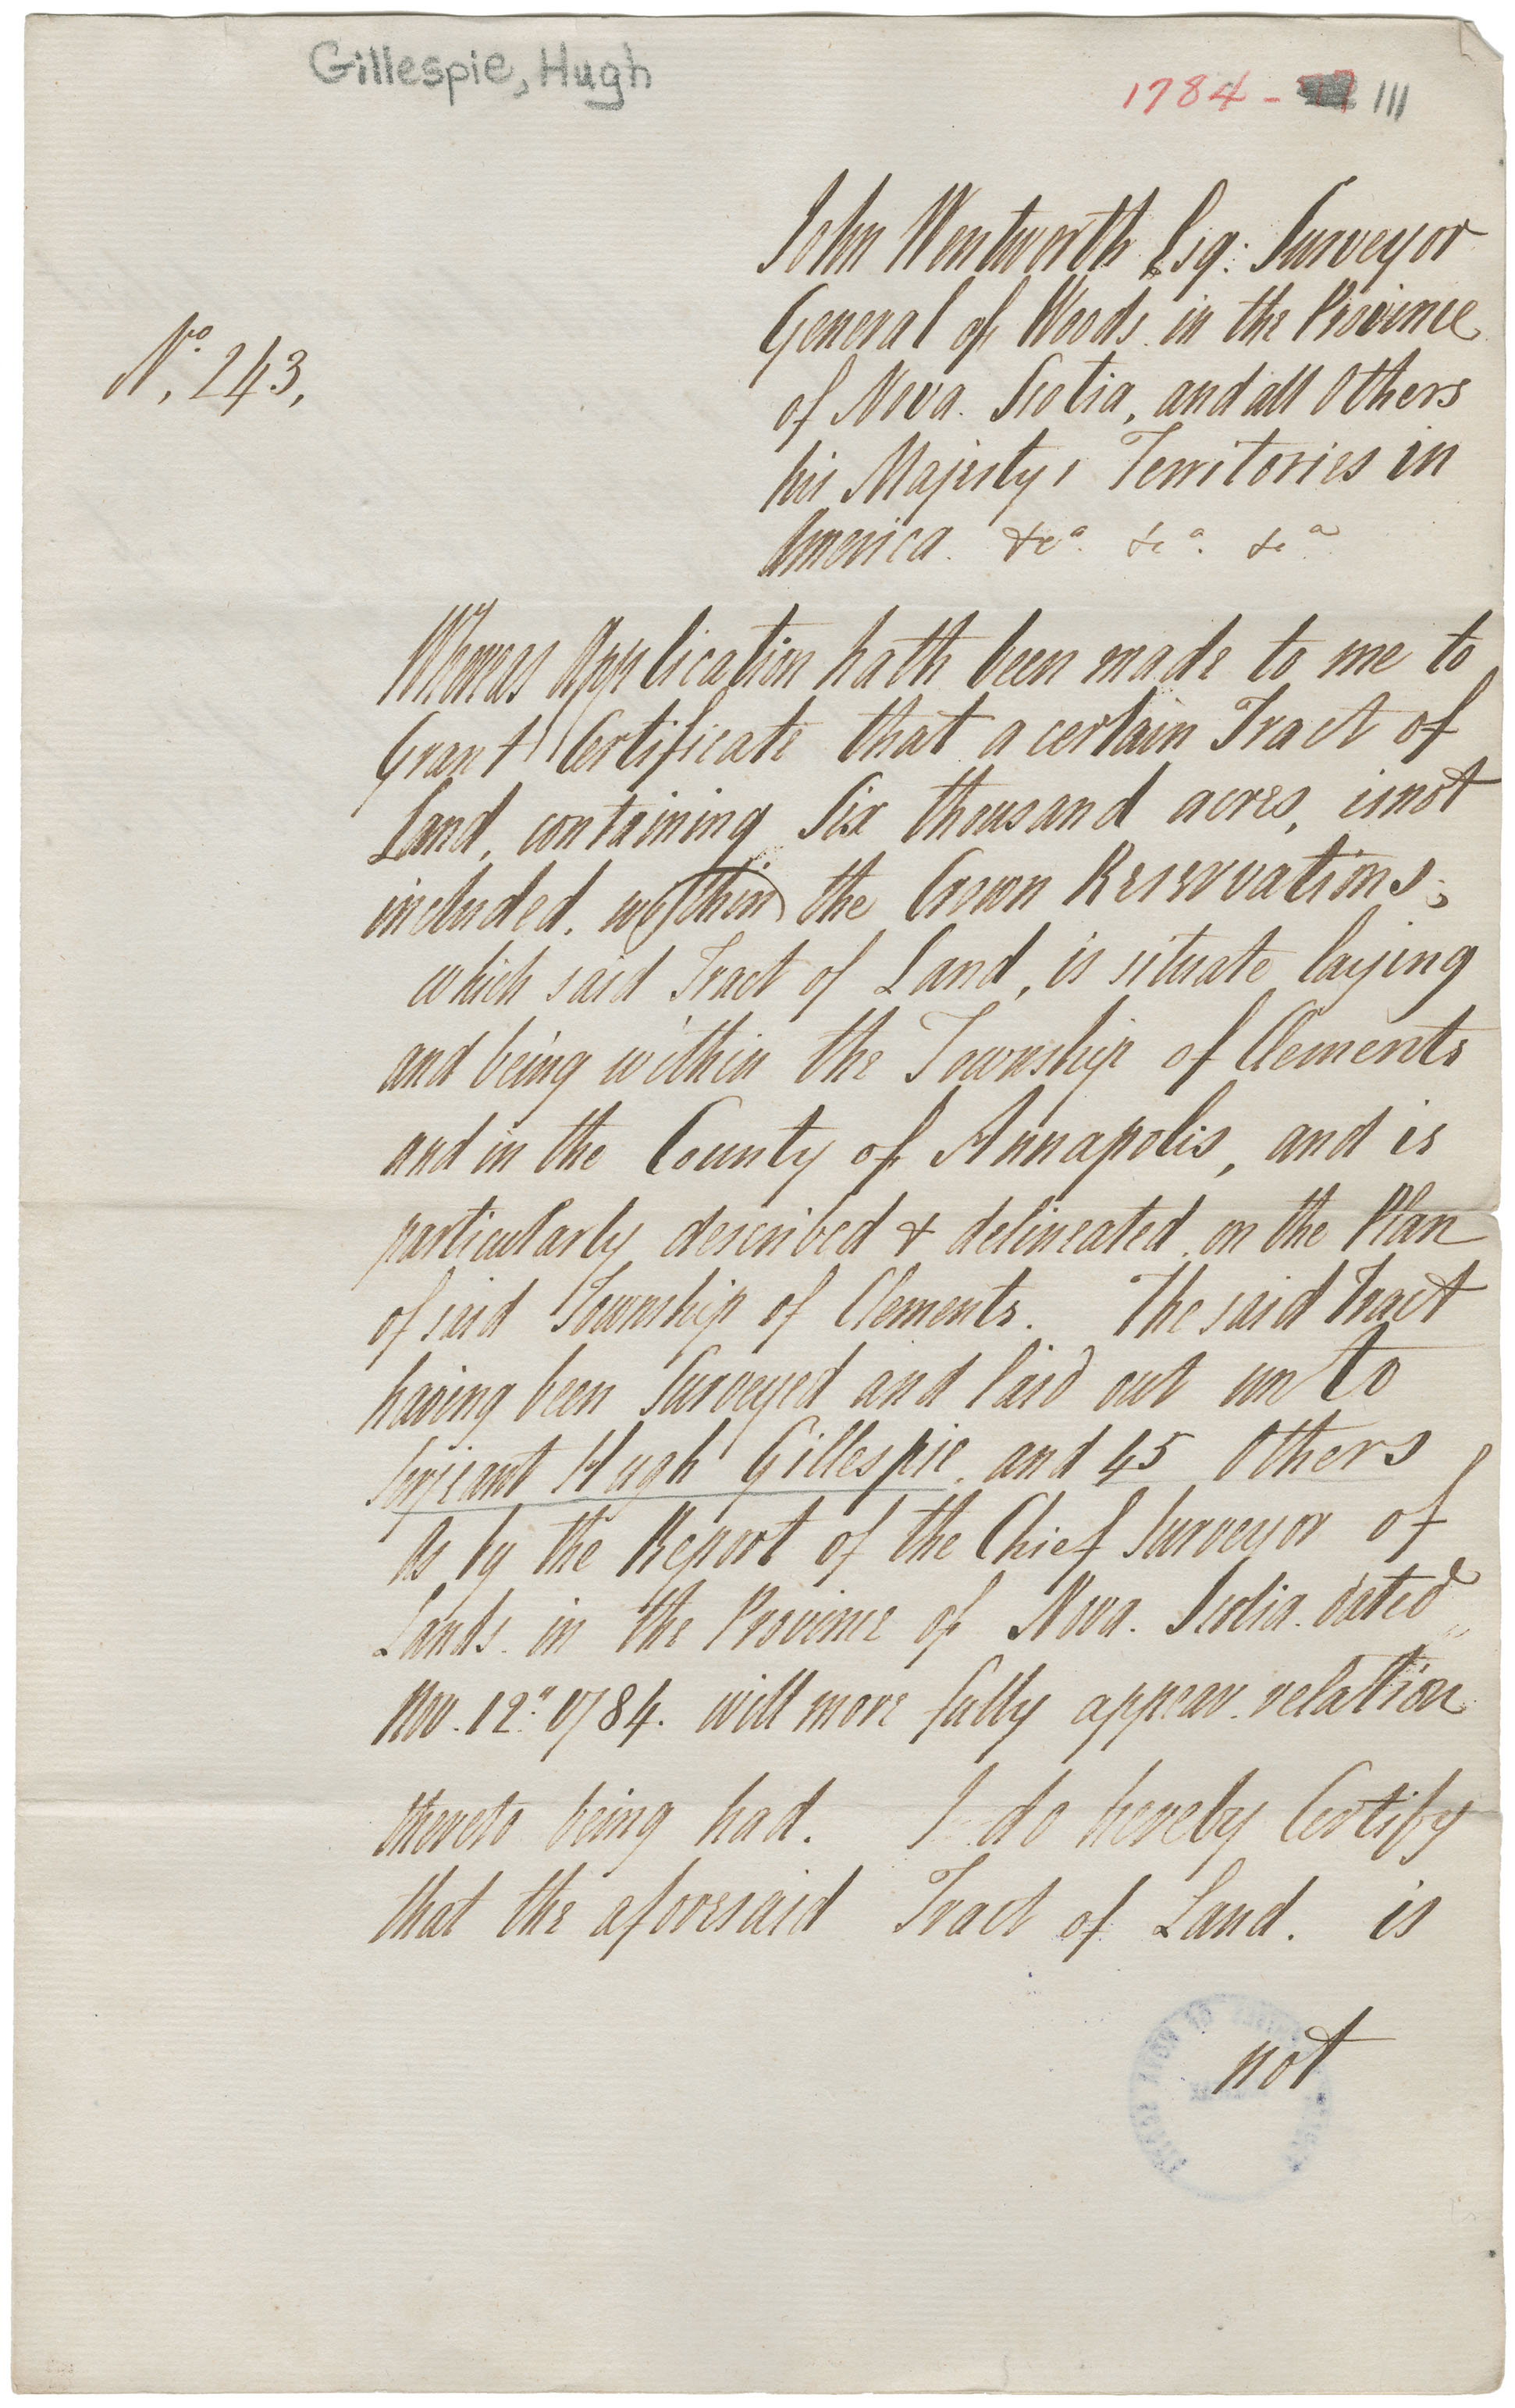 Gillespie, Hugh
1784 - 111
John Wentworth Esq: Surveyor
General of Woods. in the Province
of Nova. Scotia, and all Others
his Majesty's Territories in
America. &cª. &cª. &cª
Nº, 243,
Whereas Application hath been made to me to
Grant Certificate that a certain Tract of
Land, containing Six thousand acres, is not
included. within the Crown Reservations;
which said Tract of Land, is situate laying
and being within the Township of Clements
and in the County of Annapolis, and is
particularly described & delineated on the Plan
of said Township of Clements. The said Tract
having been Surveyed and laid out unto
Serjeant Hugh Gillespie. and 45 Others
As by the Report of the Chief Surveyor of
Lands. in the Province of Nova. Scotia. dated
Nov. 12." 1784. will more fully appear. relation
thereto being had. I do hereby Certify
that the aforesaid Tract of Land. is
not